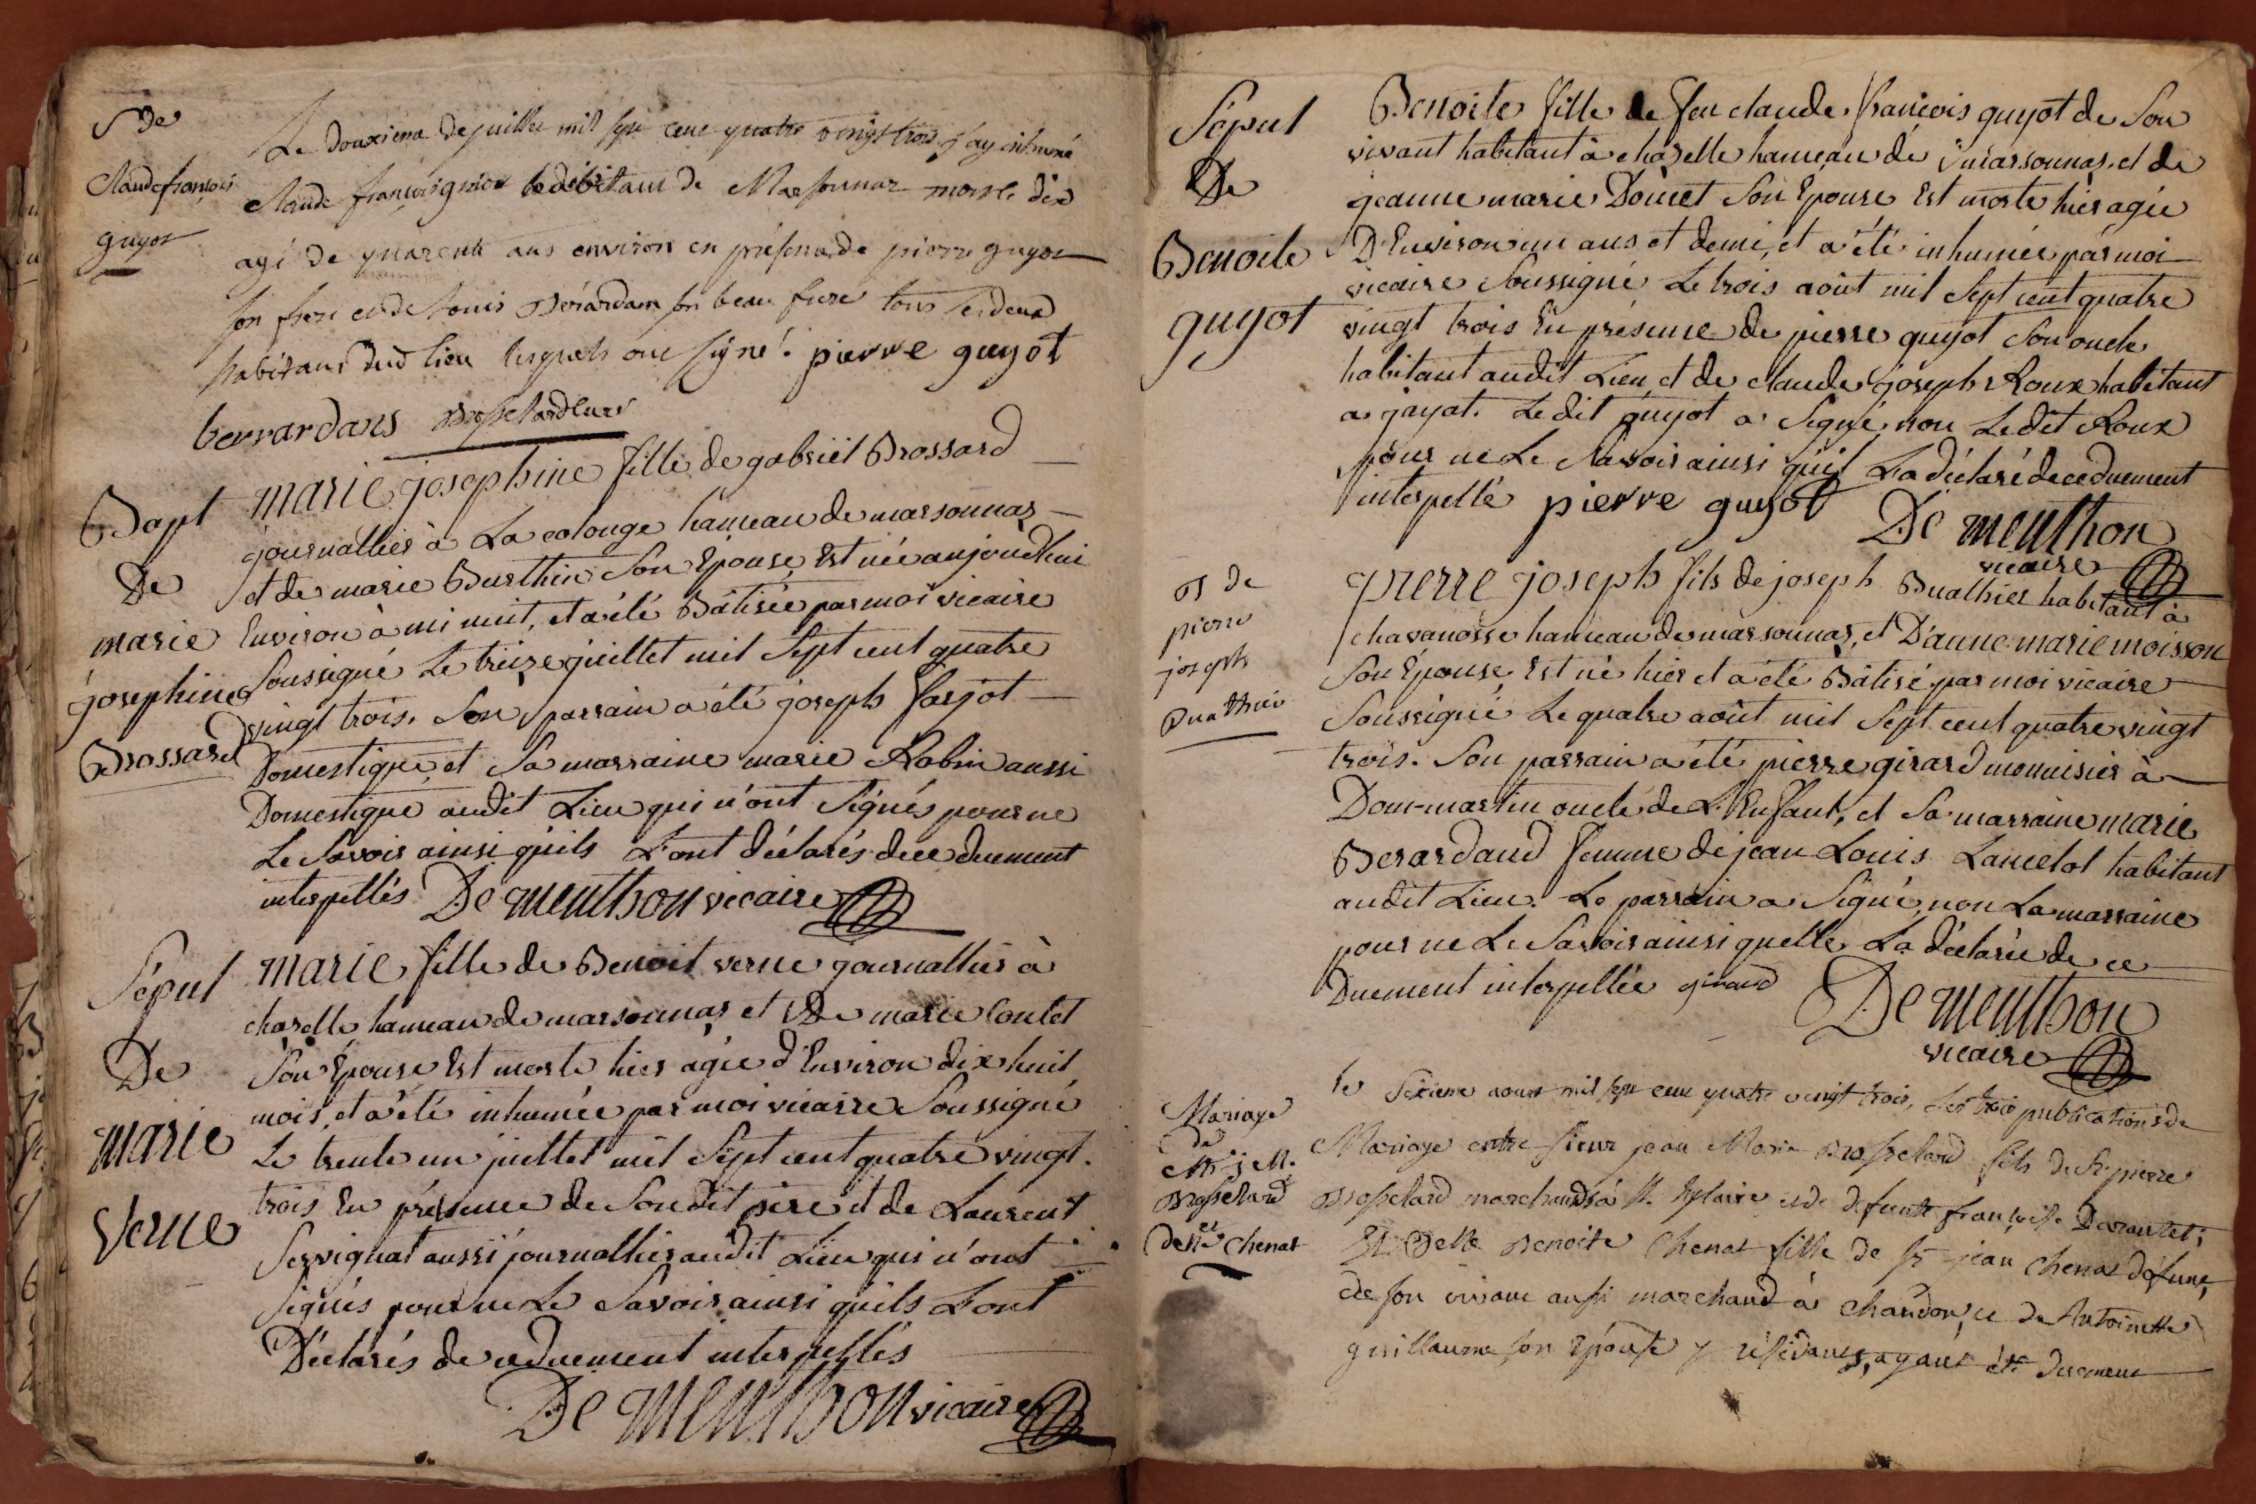 S de
Claude françois
guyot
Le douxieme de juillet mil sept cent quatre vingt trois j'ay inhumé
Claude françois guiot habitant de Marsonnaz mort le dix
agé de quarente ans environ en présence de pierre guyot
son frere et de Louis Bérardan son beau frere tous les deux
habitans dud lieu lesquels ont signé. pierre guyot
berrardans Brosselard curé
Bapt
De
marie
josephine
Brossard
marie josephine fille de gabriel Brossard
journallier à La colonge hameau de marsonnas
et de marie Burthin Son Epouse Est née aujourdhui
Environ à mi nuit, et a été Bâtisée par moi vicaire
Soussigné Le treize juillet mil Sept cent quatre
vingt trois. Son parrain a été joseph farjot
Domestique et Sa marraine marie Robin aussi
Domestique audit Lieu qui n'ont Signés pour ne
Le Savoir ainsi quils L'ont déclarés de ce duement
interpellés De menthon vicaire
Sépul
De
marie
Verne
marie fille de Benoit verne journallier à
chazelle hameau de marsonnas et De marie Contet
Son Epouse Est morte hier agée d'Environ dix huit
mois, et a été inhumée par moi vicaire Soussigné
Le trente un juillet mil Sept cent quatre vingt
trois En présence de Son dit pere et de Laurent
Servignat aussi journallier audit Lieu qui n'ont
Signés pour ne Le Savoir ainsi quils L'ont
Déclarés de ce duement interpellés
De menthon vicaire
Sépul
De
Benoite
guyot
Benoite fille de feu claude françois guyot de Son
vivant habitant à chazelle hameau de marsonnas. et de
jeanne marie Doucet Son Epouse Est morte hier agée
D'Environ un ans et demi, et a été inhumée par moi
vicaire Soussigné Le trois août mil Sept cent quatre
vingt trois En présence de pierre guyot Son oncle
habitant audit Lieu et de claude joseph Roux habitant
a jayat. Le dit guyot a Signé non Ledit Roux
pour ne Le Savoir ainsi qu'il L'a déclaré de ce duement
interpellé pierre guyot
De menthon
vicaire
B de
pierre
joseph
Buathier
pierre joseph fils de joseph Buathier habitant à
chavanosse hameau de marsonnas, et D'anne-marie moisson
Son Epouse Est né hier et a été Bâtisé par moi vicaire
Soussigné Le quatre août mil Sept cent quatre vingt
trois. Son parrain a été pierre girard monnisier à
Dom-martin oncle de L'Enfant, et Sa marraine marie
Berardand femme de jean Louis Lancelot habitant
audit Lieu. Le parrain a Signé non La marraine
pour ne Le Savoir ainsi quelle La déclarée de ce
Duement interpellée girard
De menthon
vicaire
Mariage
de
Mr j M.
Brosselard
et
de Mlle Chenat
le Sixieme aoust mil sept cent quatre vingt trois, Les trois publications de
Mariage entre sieur jean Marie Brosselard fils de Sr pierre
Brosselard marchand à St. hylaire et de defunte françoise
Et Delle Benoite Chenat fille de Sr jean Chenat défunt,
de son vivant aussi marchand à Chandon, et de Antoinette
guillaume son Epouse y résidante, ayant été duement